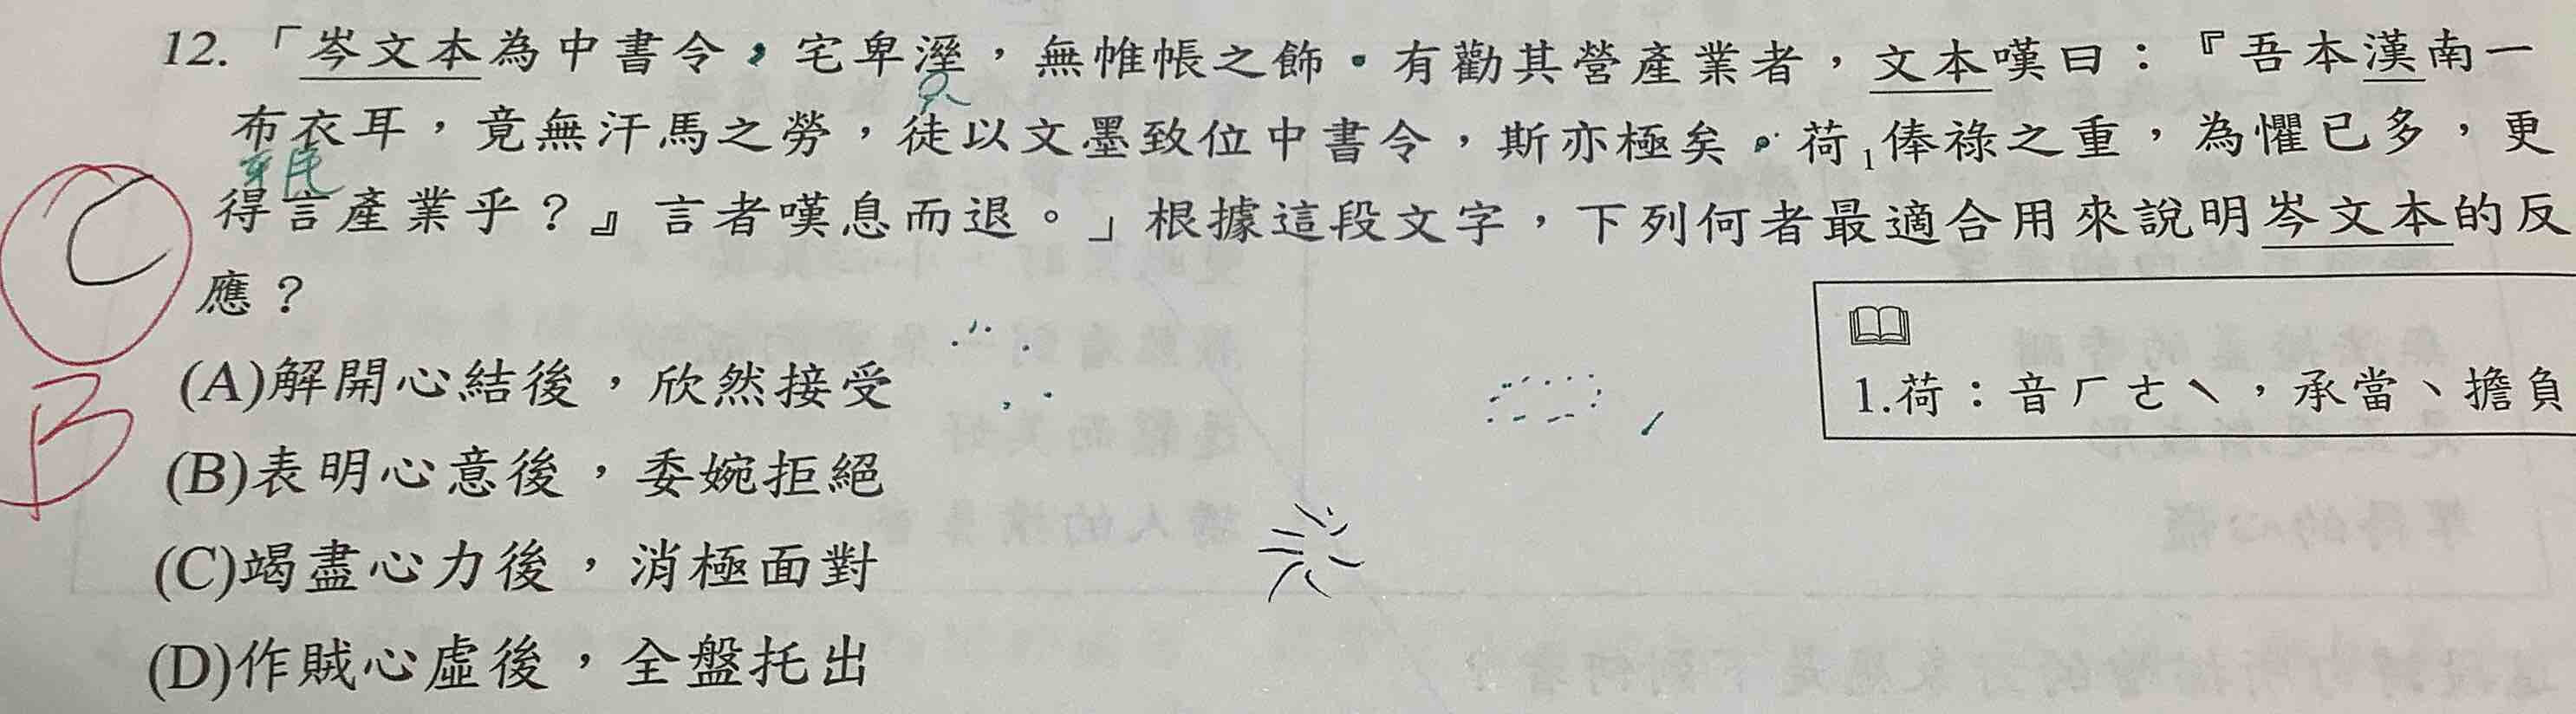 12.「岑文本為中書令，宅卑溼，無帷帳之飾。有勸其營產業者，文本嘆曰：『吾本漢南一
只
布衣耳，竟無汗馬之勞，徒以文墨致位中書令，斯亦極矣。荷1俸祿之重，為懼已多，更
平民
得言產業乎？』言者嘆息而退。」根據這段文字，下列何者最適合用來說明岑文本的反
應？
C
B
(A)解開心結後，欣然接受
(B)表明心意後，委婉拒絕
(C)竭盡心力後，消極面對
(D)作賊心虛後，全盤托出
1.荷：音ㄏㄜˋ，承當、擔負